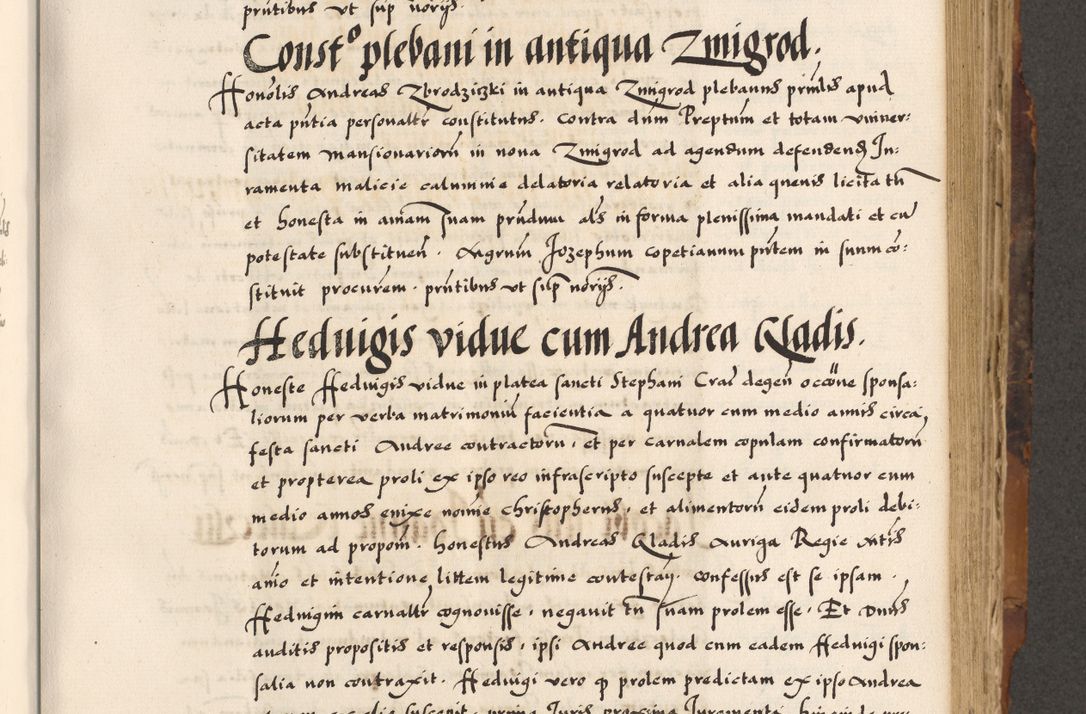 prntibus vt sup norijs.
Constº plebani in antiqua Zmigrod.
Honolis Andreas Zbrodziczki in antiqua Zmigrod plebanus prinlis apud
acta pntia personaltr constitutus. Contra dnm Preptum et totam vniuer-
sitatem mansionariorum in noua Zmigrod ad agendum defendend Ju-
ramenta malicie calumnie delatoria relatoria et alia queuis licita tn
et honesta in aniam suam prnduum als in forma plenissima mandati et cu
potestate substituen. Mgrum Jozephum copetianum pntem in suum co-
stituit procurem. prntibus vt sup norijs.
Heduigis vidue cum Andrea Qladis.
Honeste Heduigis vidue in platea sancti Stephani Crac degen occone sponsa-
liorum per verba matrimonium facientia a quatuor cum medio annis circa
festa sancti Andree contractorum, et per carnalem copulam confirmatorum
et propterea proli ex ipso reo infrascripto suscepte et ante quatuor cum
medio annos enixe nomine Christopherus, et alimentorum eidem proli debi-
torum ad propom. honestus Andreas Qladis Auriga Regie Mtis
animo et intentione littem legitime contestan. confessus est se ipsam
Heduigim carnaltr cognouisse, negauit tn suam prolem esse. Et Dnus
auditis propositis et responsis, ipsi Andree quod cum eadem Heduigi spon-
salia non contraxit. Heduigi vero q prolem predictam ex ipso Andrea